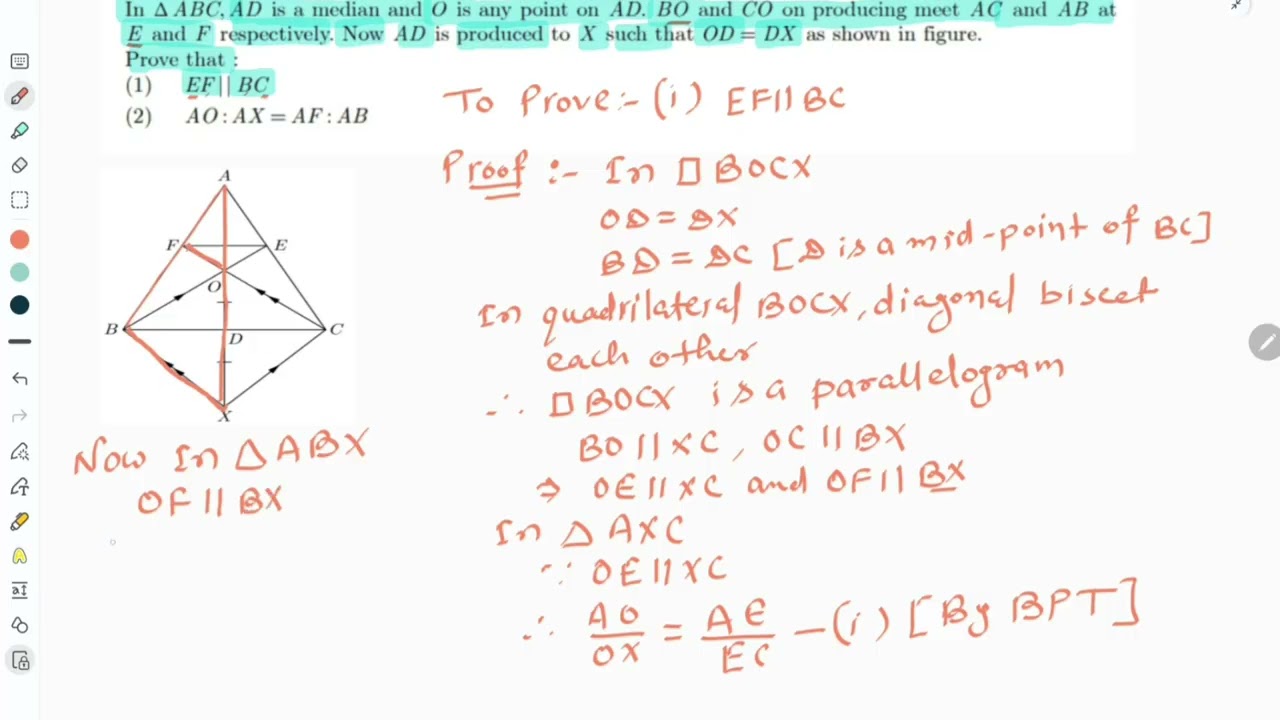 In Δ ABC, AD is a median and O is any point on AD. BO and CO on producing meet AC and AB at
E and F respectively. Now AD is produced to X such that OD = DX as shown in figure.
Prove that :
(1) EF || BC
(2) AO : AX = AF : AB
To Prove:- (i) EF || BC
Proof :- In □ BOCX
OD = DX
BD = DC [D is a mid-point of BC]
In quadrilateral BOCX, diagonal bisect
each other
∴ □ BOCX is a parallelogram
BO || XC , OC || BX
⇒ OE || XC and OF || BX
In Δ AXC
∵ OE || XC
∴ AO/OX = AE/EC - (i) [By BPT]
A
F E
O
B D C
X
Now In Δ ABX
OF || BX